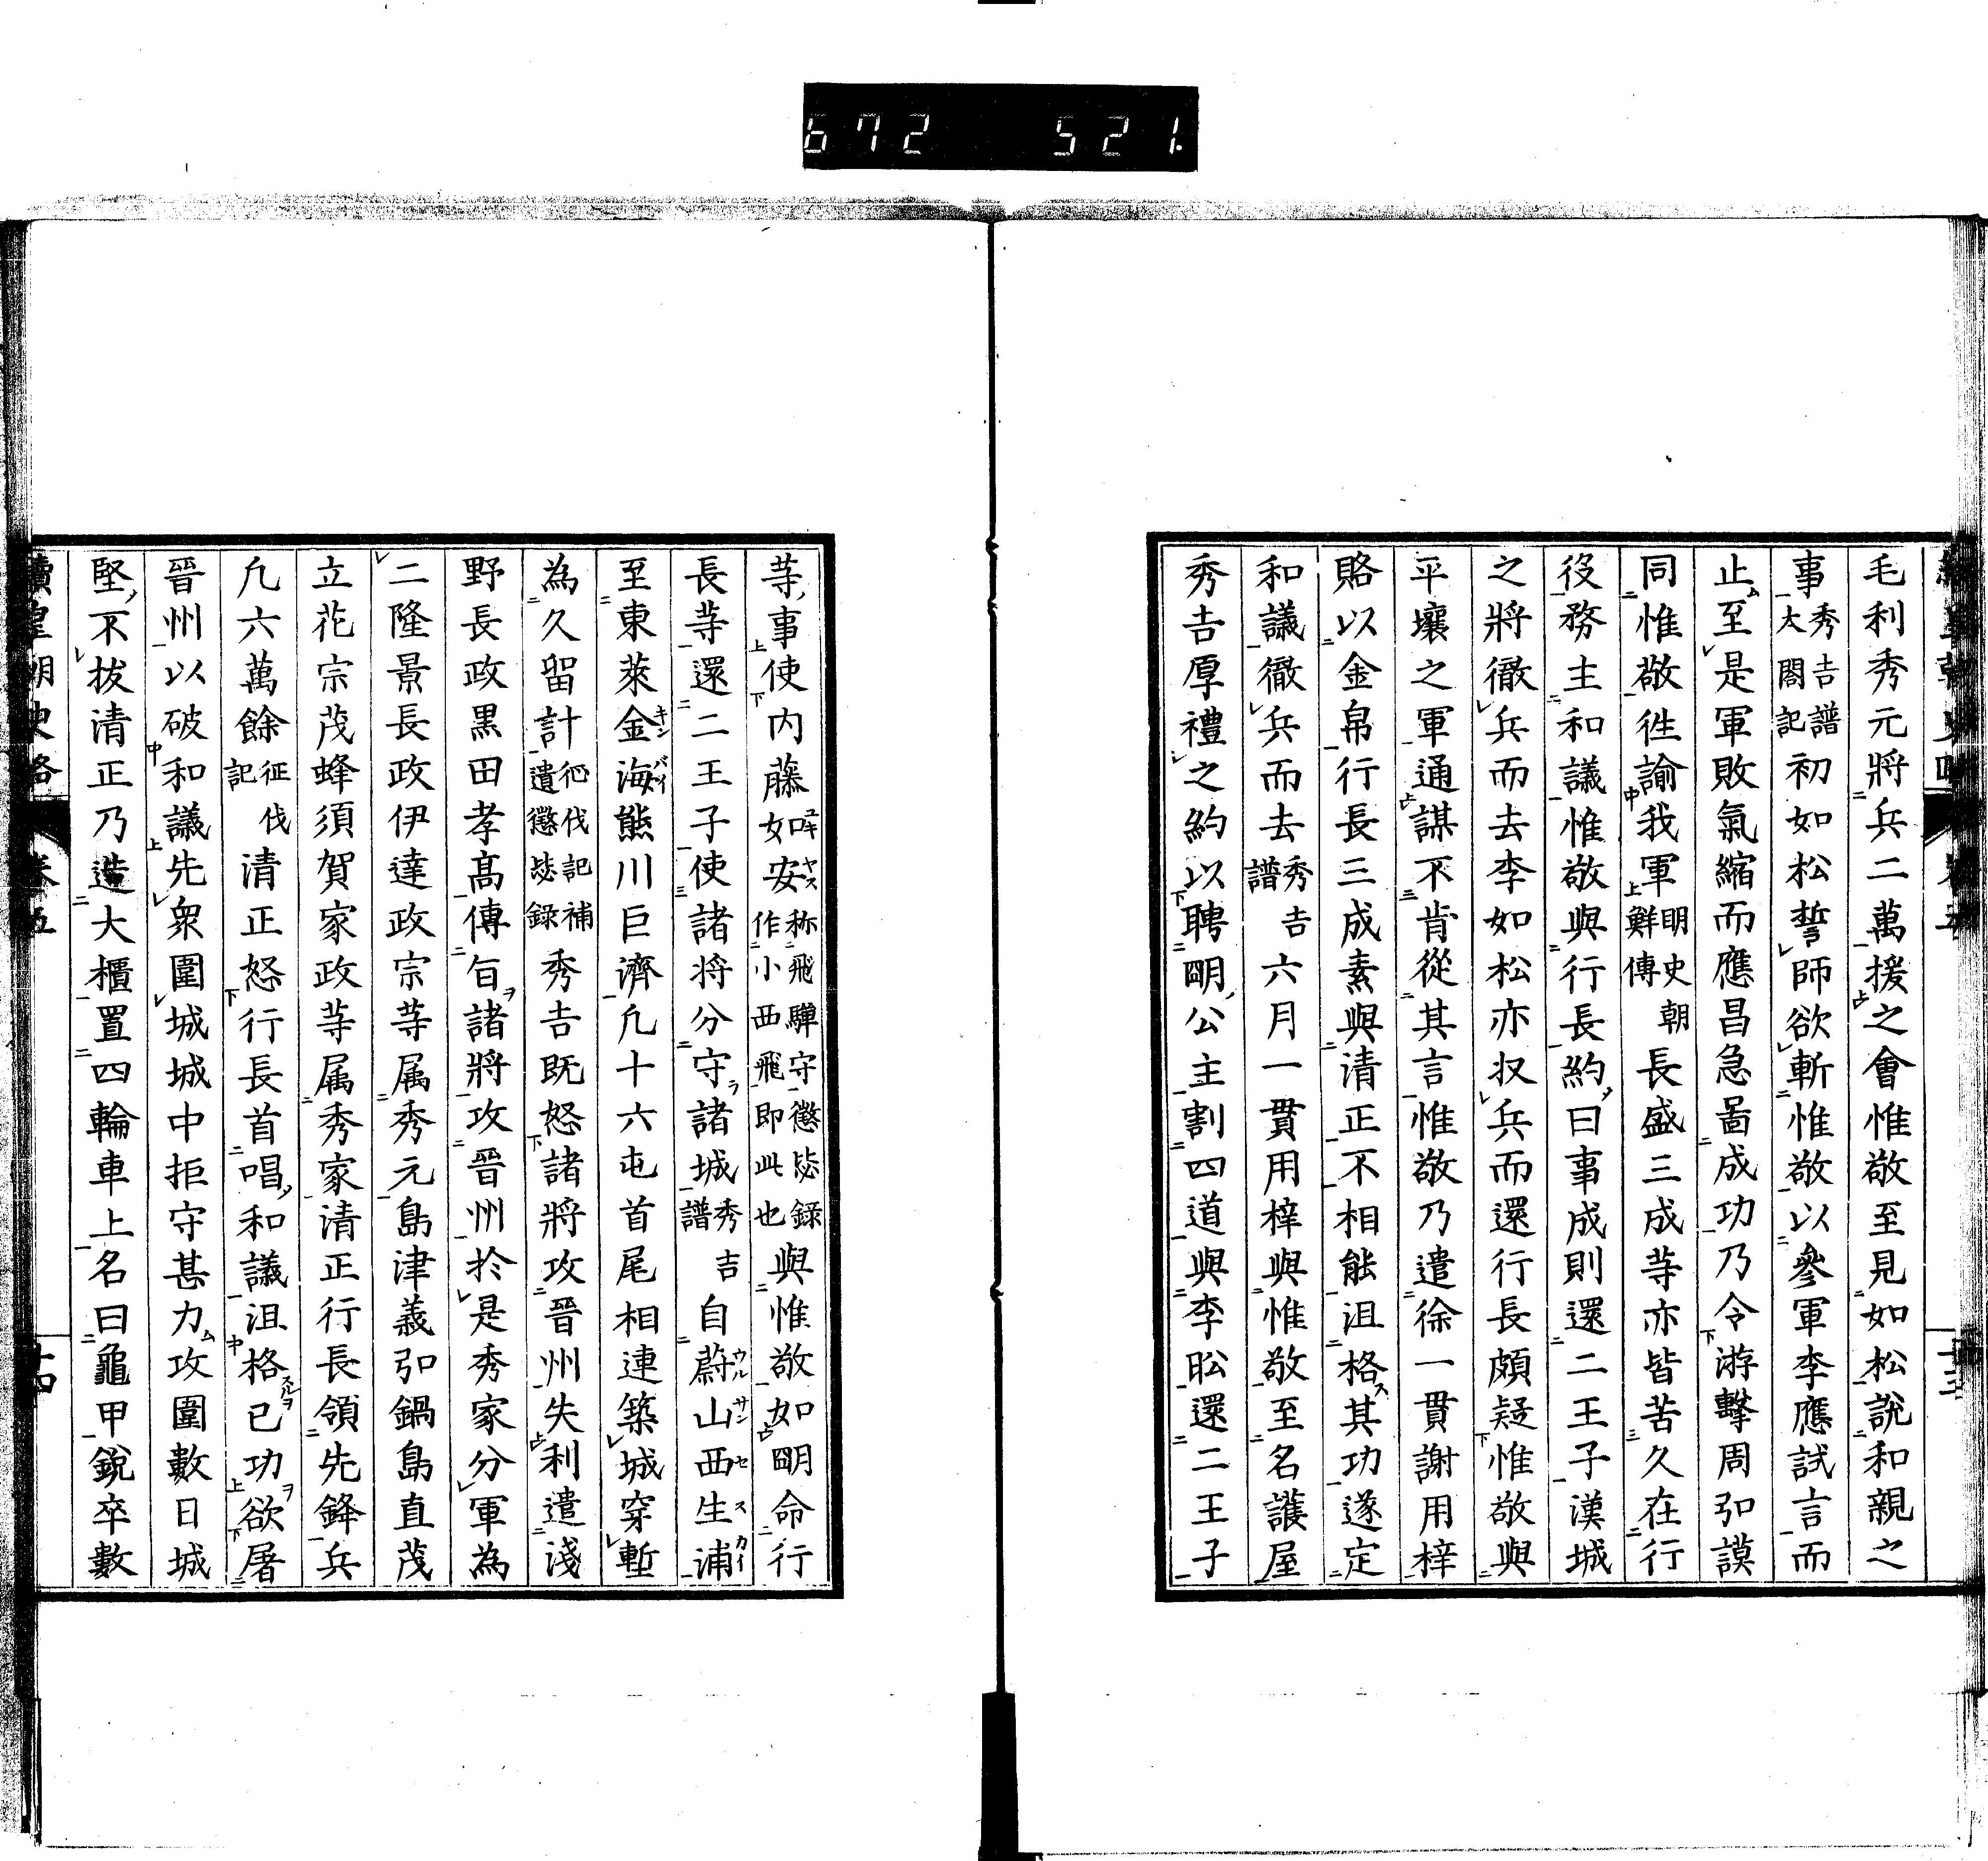 672 521.
毛利秀元將兵二萬援之會惟敬至見如松說和親之
事秀吉譜太閤記初如松誓師欲斬惟敬以參軍李應試言而
止至是軍敗氣縮而應昌急啚成功乃令游擊周弘謨
同惟敬徃諭我軍明史朝鮮傳長盛三成等亦皆苦久在行
役務主和議惟敬與行長約曰事成則還二王子漢城
之將徹兵而去李如松亦収兵而還行長頗疑惟敬與
平壤之軍通謀不肯從其言惟敬乃遣徐一貫謝用梓
賂以金帛行長三成素與清正不相能沮格其功遂定
和議徹兵而去秀吉譜六月一貫用梓與惟敬至名護屋
秀吉厚禮之約以聘明公主割四道與李昖還二王子
等事使内藤如安称飛驒守懲毖録作小西飛即此也與惟敬如明命行
長等還二王子使諸将分守諸城秀吉譜自蔚山西生浦
至東萊金海熊川巨濟凢十六屯首尾相連築城穿塹
為久留計征伐記補遺懲毖録秀吉既怒諸將攻晉州失利遣淺
野長政黒田孝高傳旨諸將攻晉州於是秀家分軍為
二隆景長政伊達政宗等属秀元島津義弘鍋島直茂
立花宗茂蜂須賀家政等属秀家清正行長領先鋒兵
凢六萬餘征伐記清正怒行長首唱和議沮格己功欲屠
晉州以破和議先衆圍城城中拒守甚力攻圍數日城
堅不拔清正乃造大櫃置四輪車上名曰龜甲銳卒數
續皇朝史略 卷五 十四